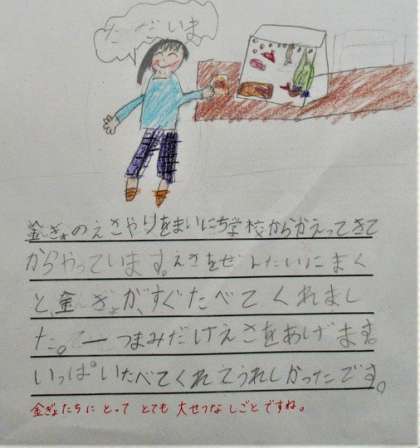 ただいま
金ぎょのえさやりをまいにち学校からかえってきて
からやっています。えさをぜんたいにまく
と、金ぎょが、すぐたべてくれまし
た。一つまみだけえさをあげます。
いっぱいたべてくれてうれしかったです。
金ぎょたちにとってとても大せつなしごとですね。